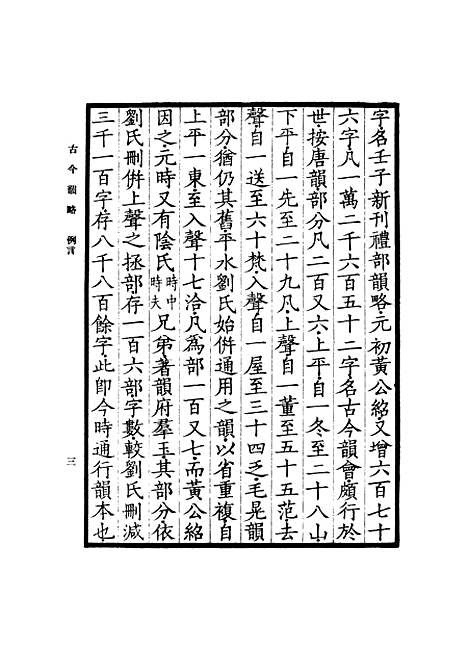 字名壬子新刊禮部韻略元初黃公紹又增六百七十
六字凡一萬二千六百五十二字名古今韻會頗行於
世按唐韻部分凡二百又六上平自一冬至二十八山
下平自一先至二十九凡上聲自一董至五十五范去
聲自一送至六十梵入聲自一屋至三十四乏毛晃韻
部分猶仍其舊平水劉氏始併通用之韻以省重複自
上平一東至入聲十七洽凡爲部一百又七而黃公紹
因之元時又有陰氏時中時夫兄弟著韻府羣玉其部分依
劉氏刪併上聲之拯部存一百六部字數較劉氏刪減
三千一百字存八千八百餘字此卽今時通行韻本也
古今韻略 例言
三